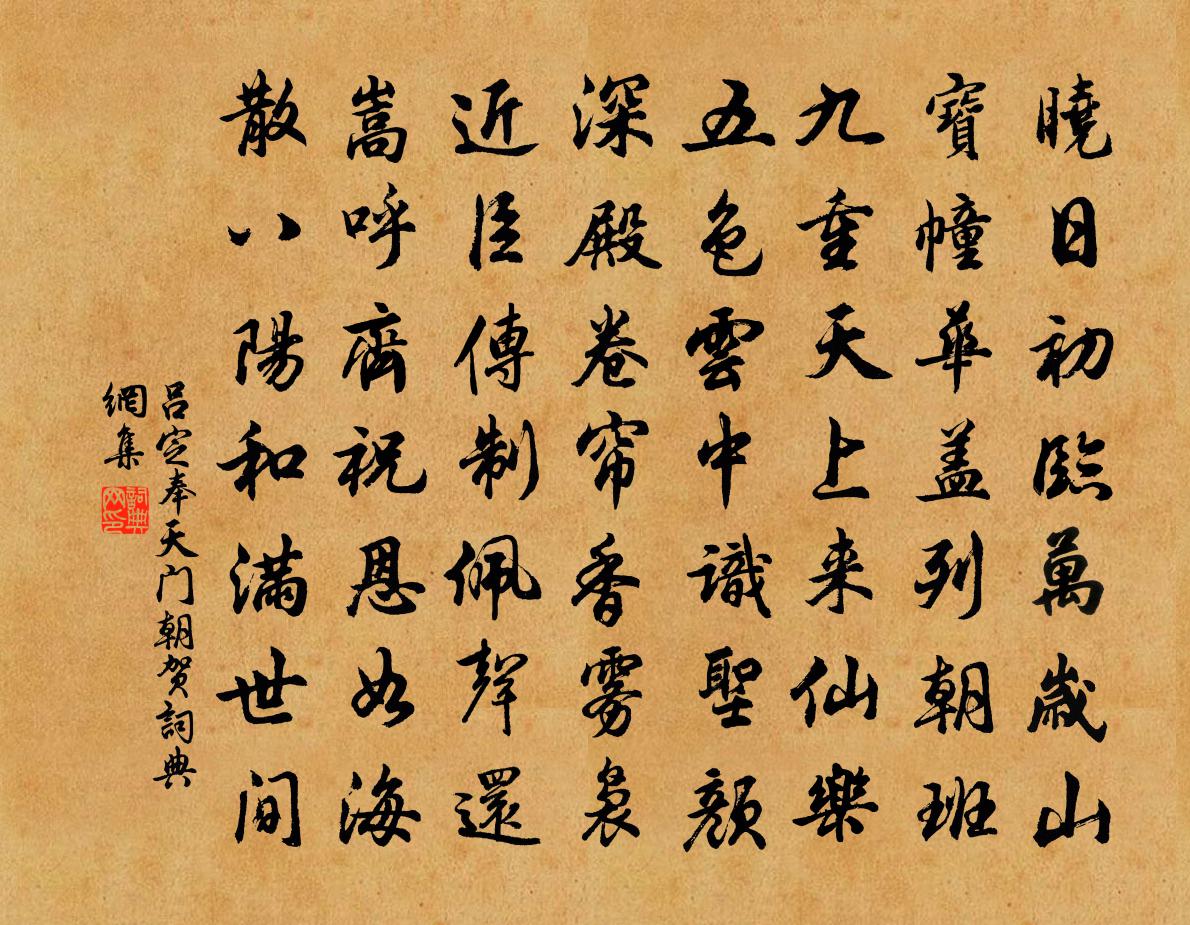 曉日初臨萬歲山
寶幢華盖列朝班
九重天上来仙樂
五色雲中識聖顔
深殿卷帘香霧裊
近臣傳制佩聲還
嵩呼齊祝恩如海
散八陽和滿世間
吕定奉天门朝贺詞典
網集
詞典
网印